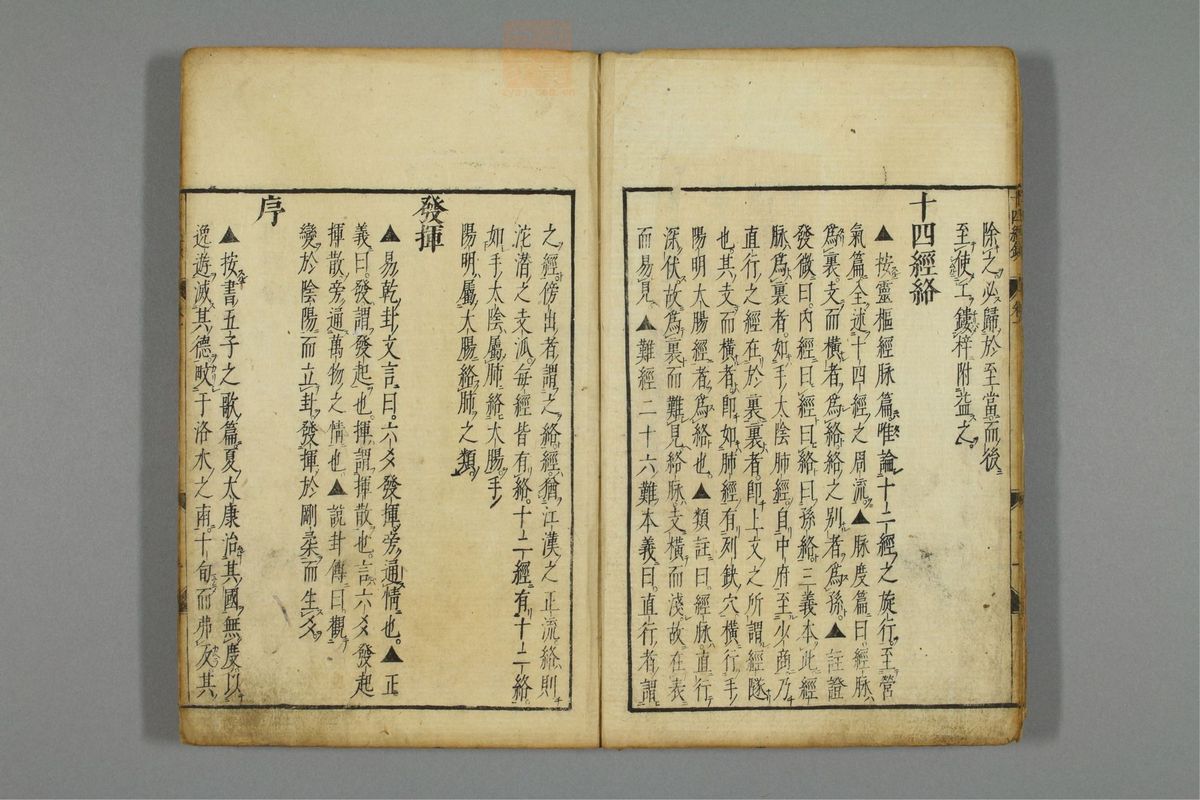 除之必歸於至當而後
至使工鏤梓附益之
十四經絡
▲按靈樞經脉篇唯論十二經之旋行至營
氣篇全述十四經之周流▲脉度篇曰經脉
爲裏支而橫者爲絡絡之別者爲孫▲註證
發微曰內經曰經曰絡曰孫絡三義本此經
脉爲裏者如手太陰肺經自中府至少商乃
直行之經在於裏裏者卽上文之所謂經隧
也其支而橫者卽如肺經有列缺穴橫行手
陽明太腸經者爲絡也▲類註曰經脉直行
深伏故爲裏而難見絡脉支橫而淺故在表
而易見▲難經二十六難本義曰直行者謂
之經傍出者謂之絡經猶江漢之正流絡則
沱潛之支派每經皆有絡十二經有十二絡
如手太陰屬肺絡太腸手
陽明屬太腸絡肺之類
發揮
▲易乾卦文言曰六爻發揮旁通情也▲正
義曰發謂發起也揮謂揮散也言六爻發起
揮散旁通萬物之情也▲說卦傳曰觀
變於陰陽而立卦發揮於剛柔而生爻
序
▲按書五子之歌篇夏太康治其國無度以
逸遊滅其德畋于洛水之南十旬而弗反其